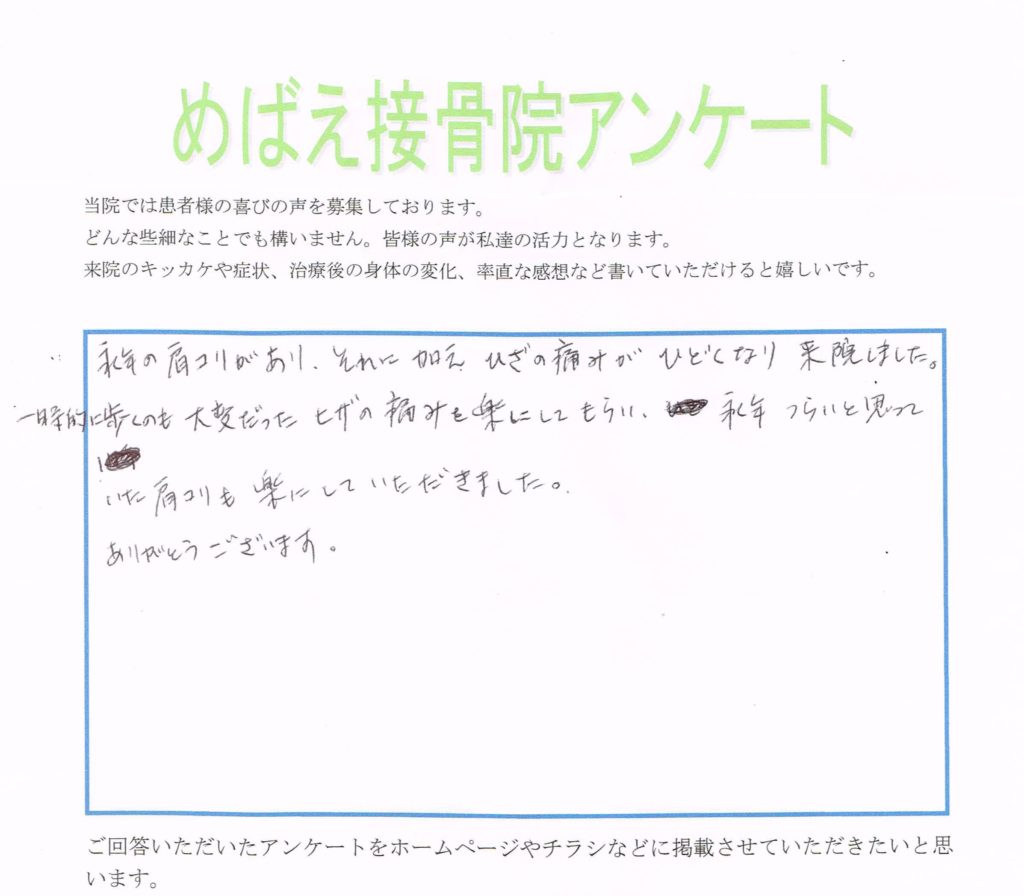 めばえ接骨院アンケート
当院では患者様の喜びの声を募集しております。
どんな些細なことでも構いません。皆様の声が私達の活力となります。
来院のキッカケや症状、治療後の身体の変化、率直な感想など書いていただけると嬉しいです。
永年の肩コリがあり、それに加え ひざの痛みが ひどくなり 来院しました。
一時的に歩くのも 大変だった ヒザの痛みを楽にしてもらい、永年 つらいと思って
いた肩コリも楽にしていただきました。
ありがとうございます。
ご回答いただいたアンケートをホームページやチラシなどに掲載させていただきたいと思
います。